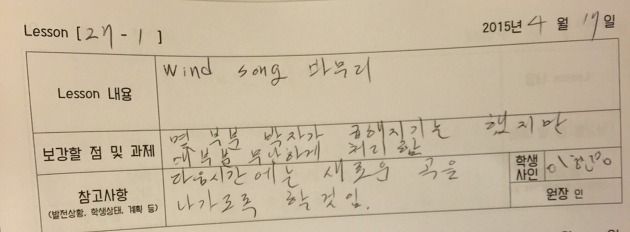 Lesson [27-1] 2015년 4 월 17 일
Lesson 내용
Wind song 마무리
보강할 점 및 과제
몇 부분 박자가 급해지기는 했지만
대부분 무난하게 처리함
참고사항
(발전상황, 학생상태, 계획 등)
다음시간에는 새로운 곡을
나가도록 할것임.
학생
사인
원장 인